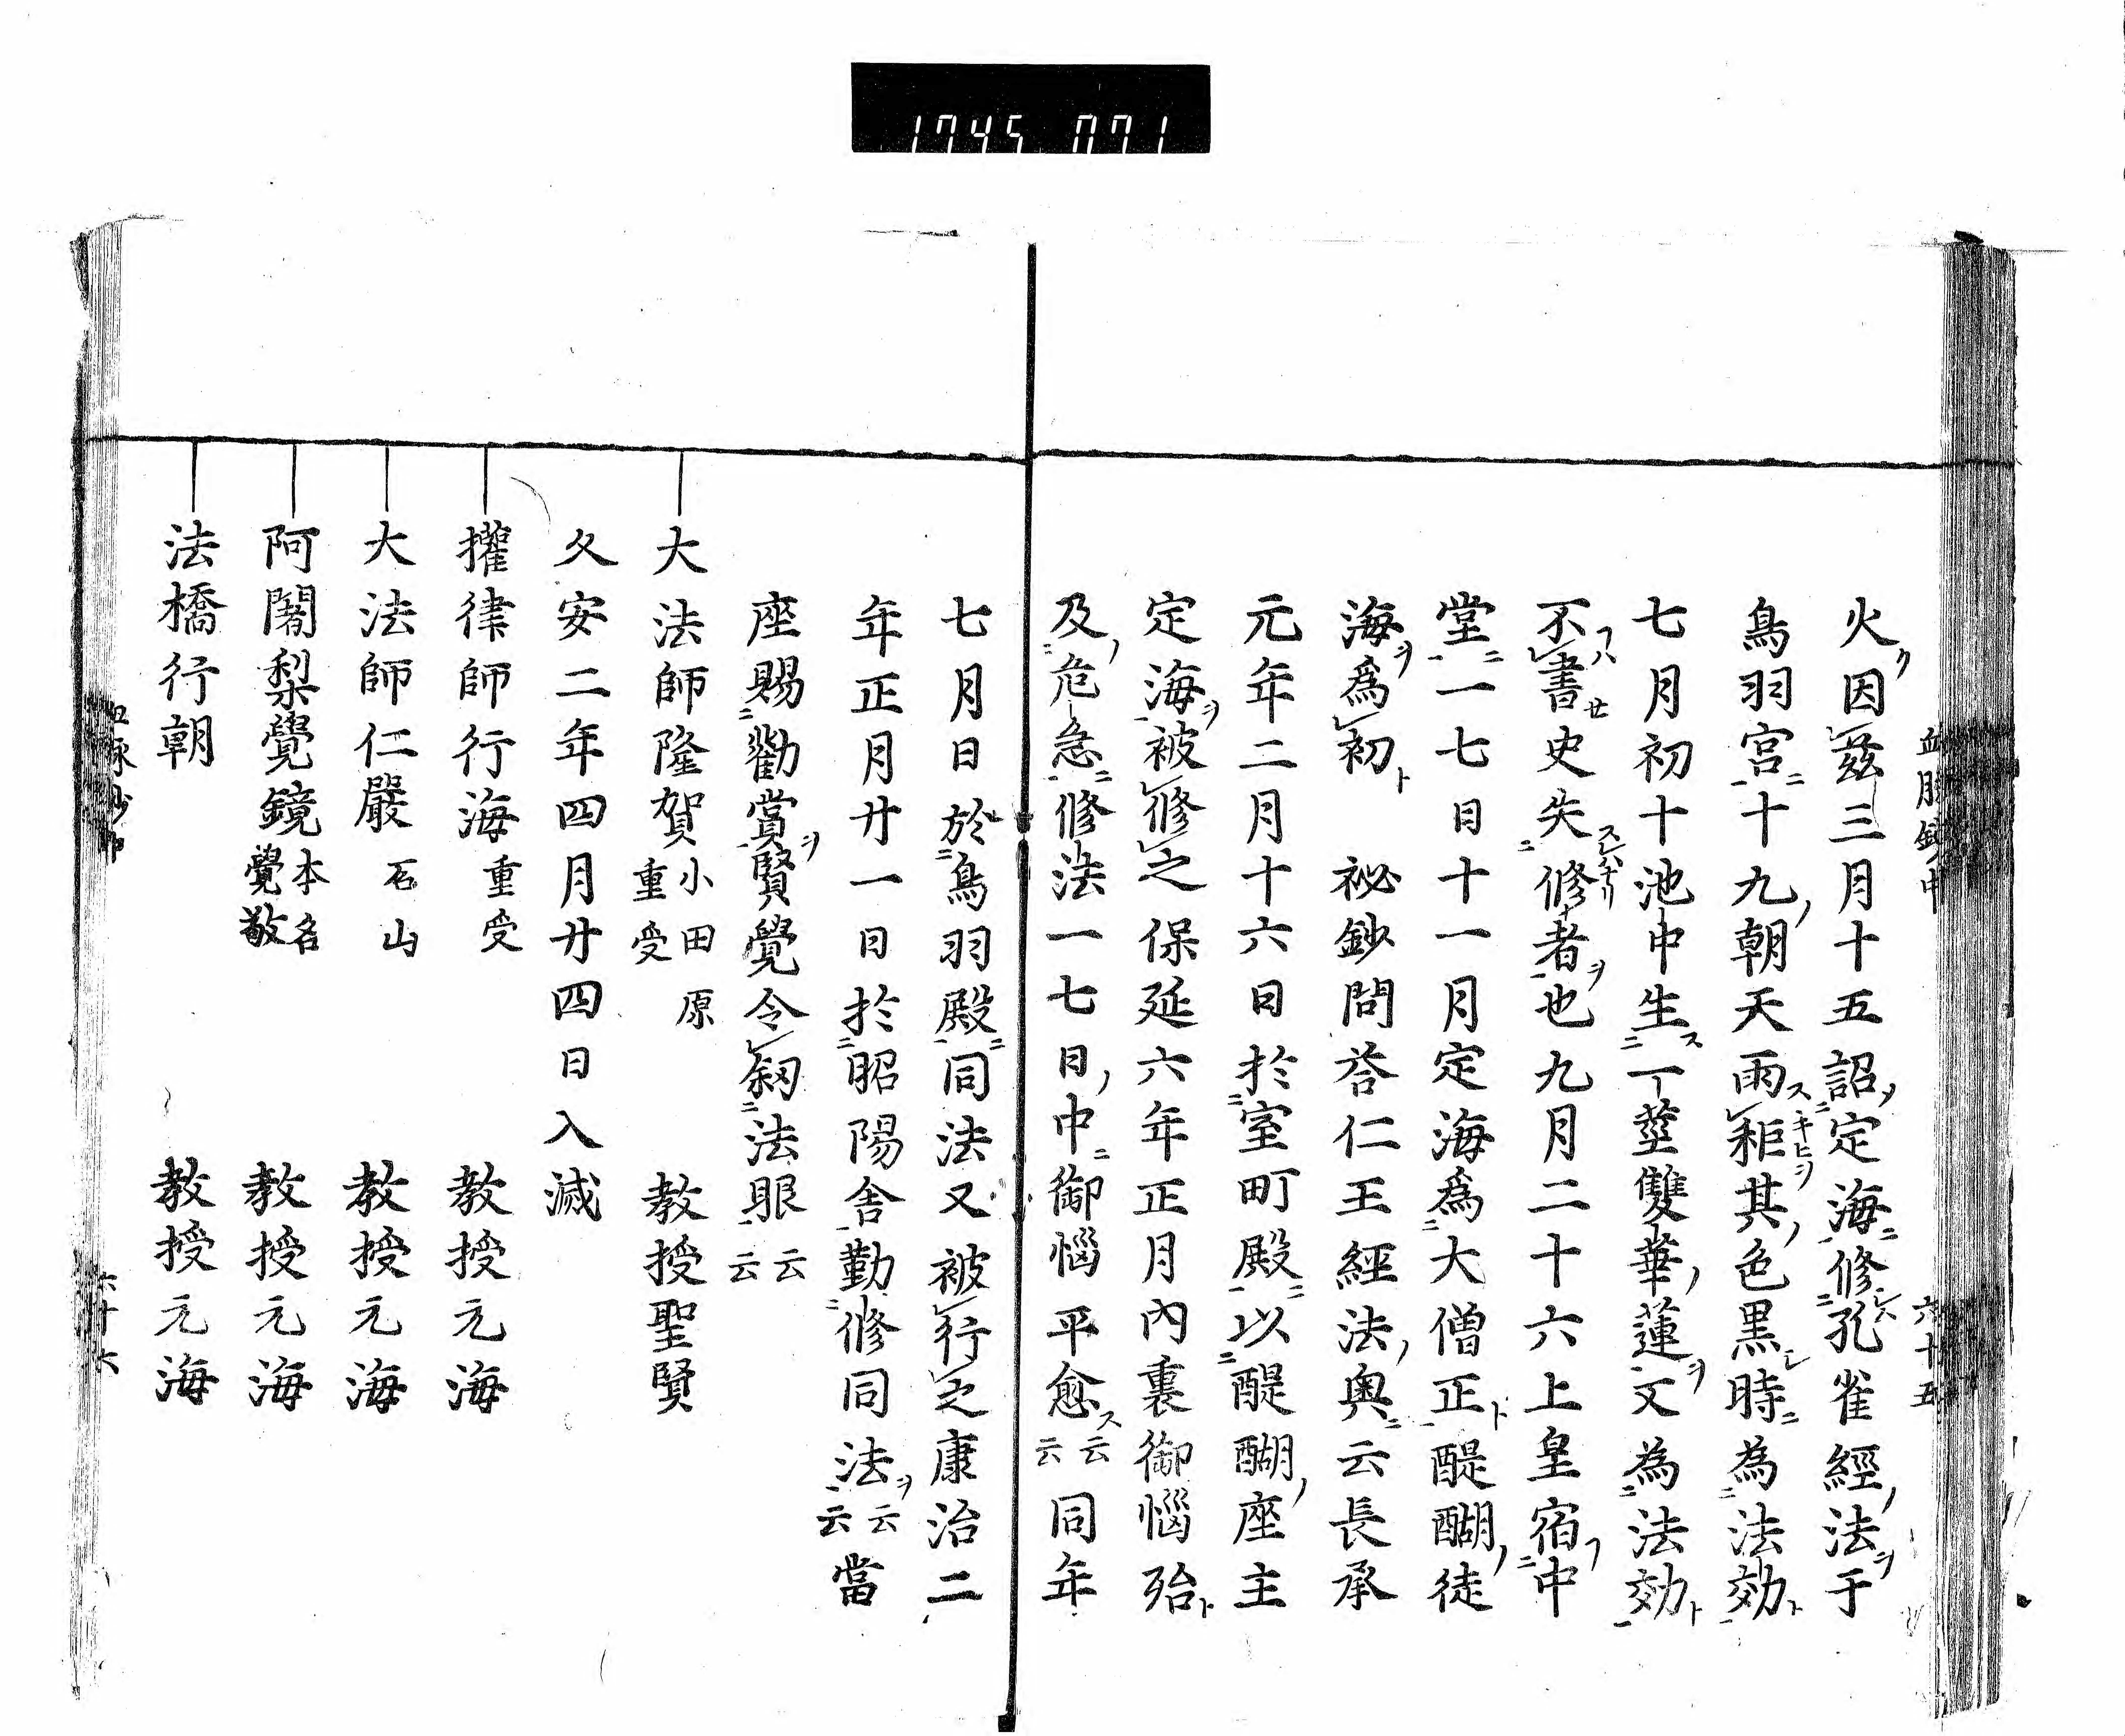 1745 071
血脈鈔中 六十五
火因茲三月十五詔定海修孔雀經法于
鳥羽宮十九朝天雨秬其色黒時為法効
七月初十池中生一莖雙華蓮又為法効
不書史失修者也九月二十六上皇宿中
堂一七日十一月定海爲大僧正醍醐徒
海爲初 祕鈔問荅仁王經法奥云長承
元年二月十六日於室町殿以醍醐座主
定海被修之保延六年正月内裏御惱殆
及危急修法一七日中御惱平愈云云同年
七月日於鳥羽殿同法又被行之康治二
年正月廿一日於昭陽舎勤修同法云云當
座賜勸賞賢覺令叙法眼云云
大法師隆賀 小田原 重受 教授聖賢
久安二年四月廿四日入滅
權律師行海 重受 教授元海
大法師仁嚴 石山 教授元海
阿闍梨覺鏡 本名覺敬 教授元海
法橋行朝 教授元海
六十六